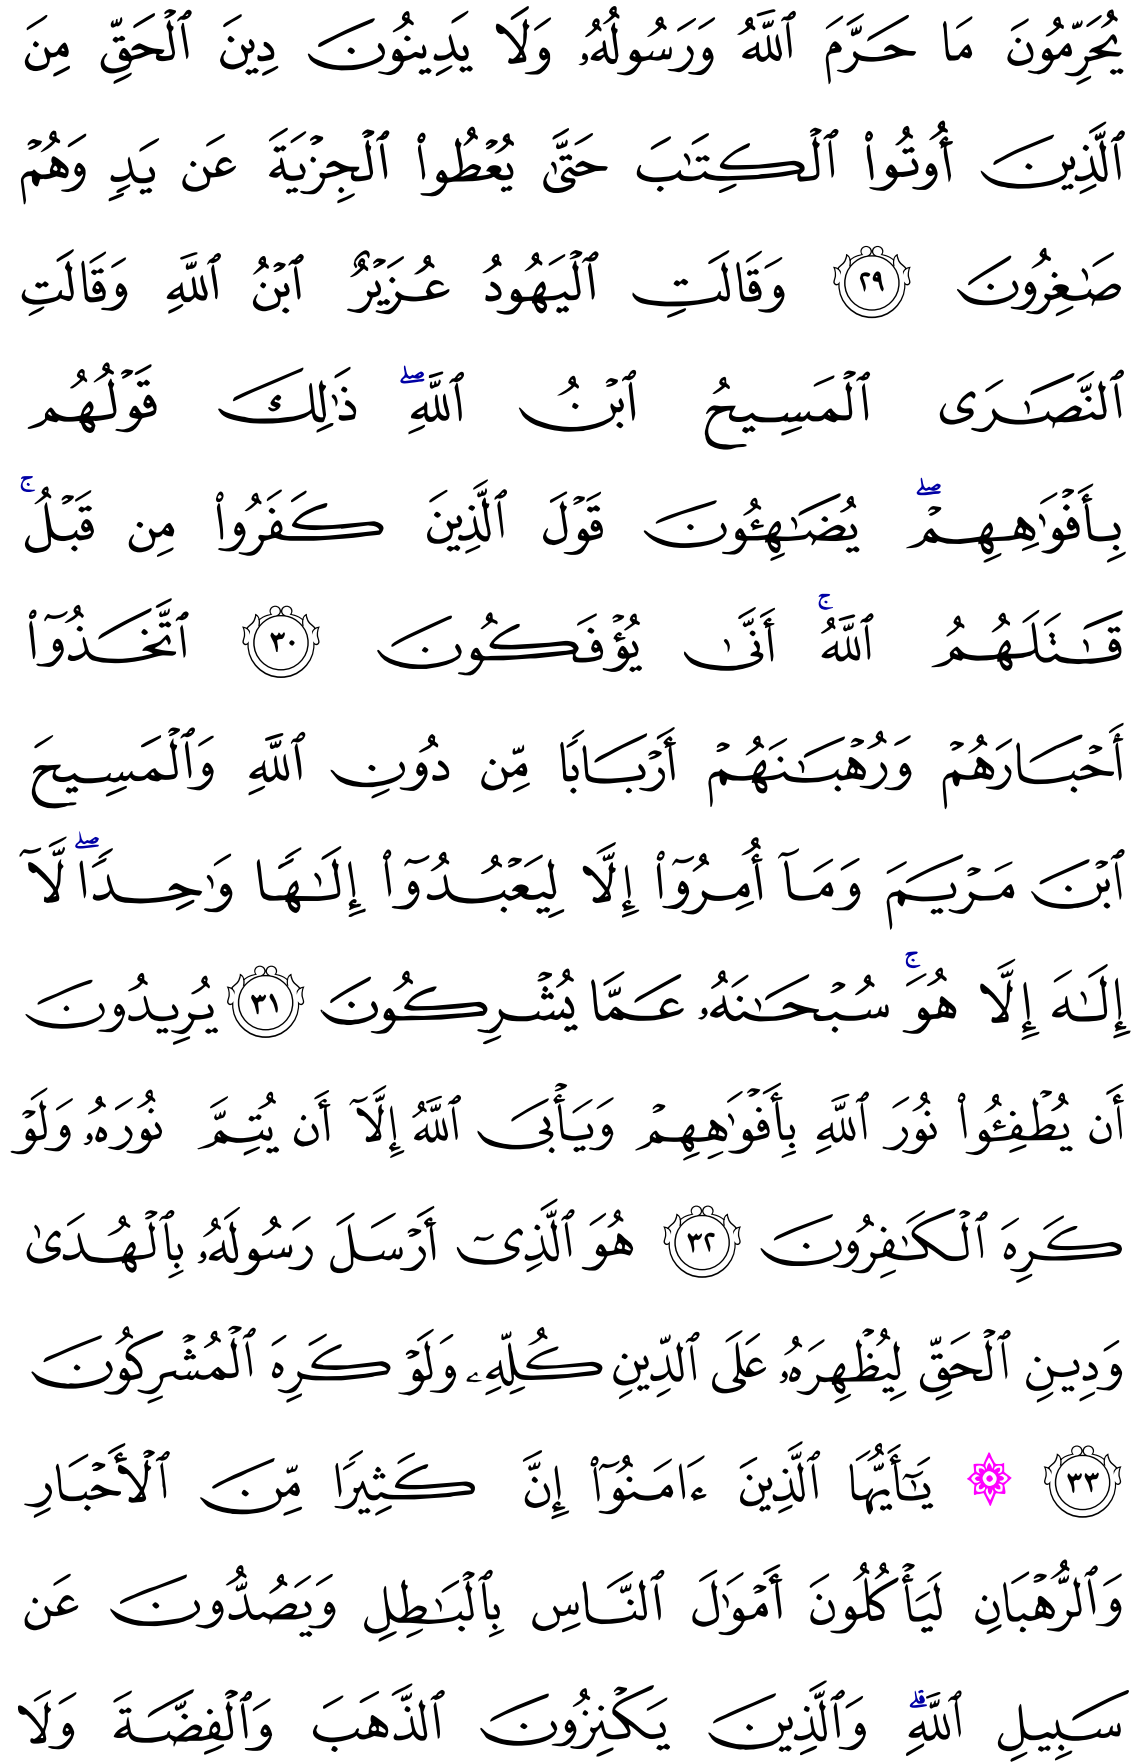 يُحَرِّمُونَ مَا حَرَّمَ ٱللَّهُ وَرَسُولُهُۥ وَلَا يَدِينُونَ دِينَ ٱلْحَقِّ مِنَ
ٱلَّذِينَ أُوتُوا۟ ٱلْكِتَـٰبَ حَتَّىٰ يُعْطُوا۟ ٱلْجِزْيَةَ عَن يَدٍۢ وَهُمْ
صَـٰغِرُونَ ٢٩ وَقَالَتِ ٱلْيَهُودُ عُزَيْرٌ ٱبْنُ ٱللَّهِ وَقَالَتِ
ٱلنَّصَـٰرَى ٱلْمَسِيحُ ٱبْنُ ٱللَّهِ ۖ ذَٰلِكَ قَوْلُهُم
بِأَفْوَٰهِهِمْ ۖ يُضَـٰهِـُٔونَ قَوْلَ ٱلَّذِينَ كَفَرُوا۟ مِن قَبْلُ ۚ
قَـٰتَلَهُمُ ٱللَّهُ ۚ أَنَّىٰ يُؤْفَكُونَ ٣٠ ٱتَّخَذُوٓا۟
أَحْبَارَهُمْ وَرُهْبَـٰنَهُمْ أَرْبَابًا مِّن دُونِ ٱللَّهِ وَٱلْمَسِيحَ
ٱبْنَ مَرْيَمَ وَمَآ أُمِرُوٓا۟ إِلَّا لِيَعْبُدُوٓا۟ إِلَـٰهًا وَٰحِدًا ۖ لَّآ
إِلَـٰهَ إِلَّا هُوَ ۚ سُبْحَـٰنَهُۥ عَمَّا يُشْرِكُونَ ٣١ يُرِيدُونَ
أَن يُطْفِـُٔوا۟ نُورَ ٱللَّهِ بِأَفْوَٰهِهِمْ وَيَأْبَى ٱللَّهُ إِلَّآ أَن يُتِمَّ نُورَهُۥ وَلَوْ
كَرِهَ ٱلْكَـٰفِرُونَ ٣٢ هُوَ ٱلَّذِىٓ أَرْسَلَ رَسُولَهُۥ بِٱلْهُدَىٰ
وَدِينِ ٱلْحَقِّ لِيُظْهِرَهُۥ عَلَى ٱلدِّينِ كُلِّهِۦ وَلَوْ كَرِهَ ٱلْمُشْرِكُونَ
٣٣ ۞ يَـٰٓأَيُّهَا ٱلَّذِينَ ءَامَنُوٓا۟ إِنَّ كَثِيرًا مِّنَ ٱلْأَحْبَارِ
وَٱلرُّهْبَانِ لَيَأْكُلُونَ أَمْوَٰلَ ٱلنَّاسِ بِٱلْبَـٰطِلِ وَيَصُدُّونَ عَن
سَبِيلِ ٱللَّهِ ۗ وَٱلَّذِينَ يَكْنِزُونَ ٱلذَّهَبَ وَٱلْفِضَّةَ وَلَا